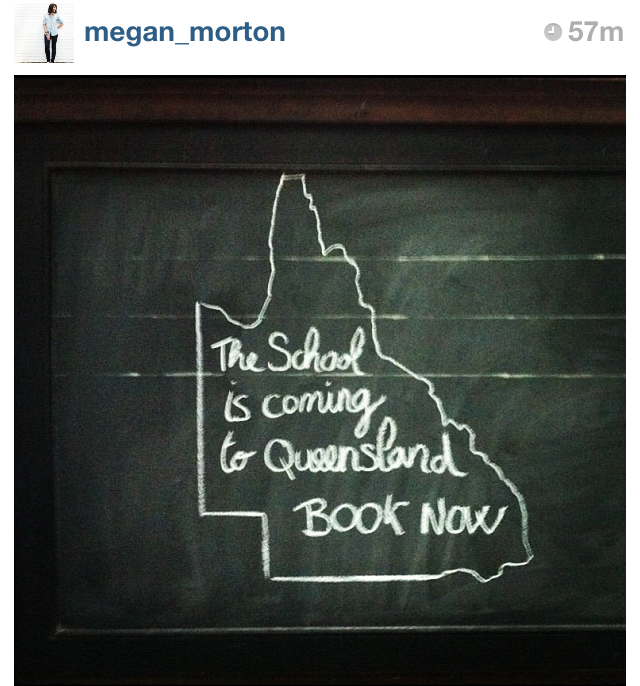 megan_morton
57m
The School
is coming
to Queensland
BOOK NOW